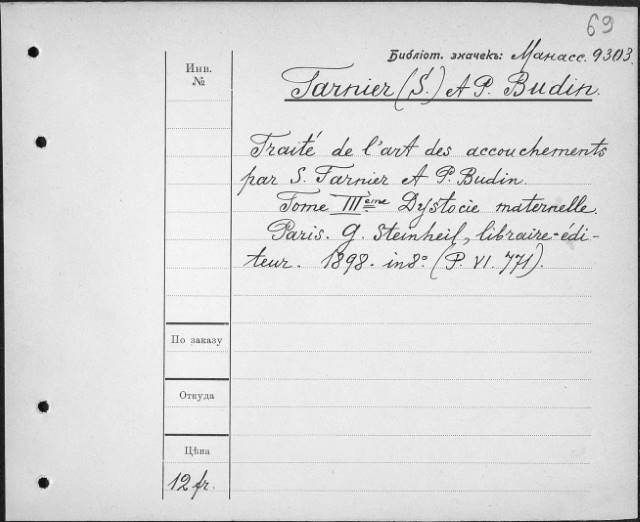 69
Библіот. значекъ: Манасс. 9303.
Инв.
№
Tarnier (S.) et P. Budin.
Traité de l'art des accouchements
par S. Tarnier et P. Budin.
Tome IIIème Dystocie maternelle.
Paris. G. Steinheil, libraire-édi-
teur. 1898. in 8° (P. VI. 771).
По заказу
Откуда
Цѣна
12 fr.